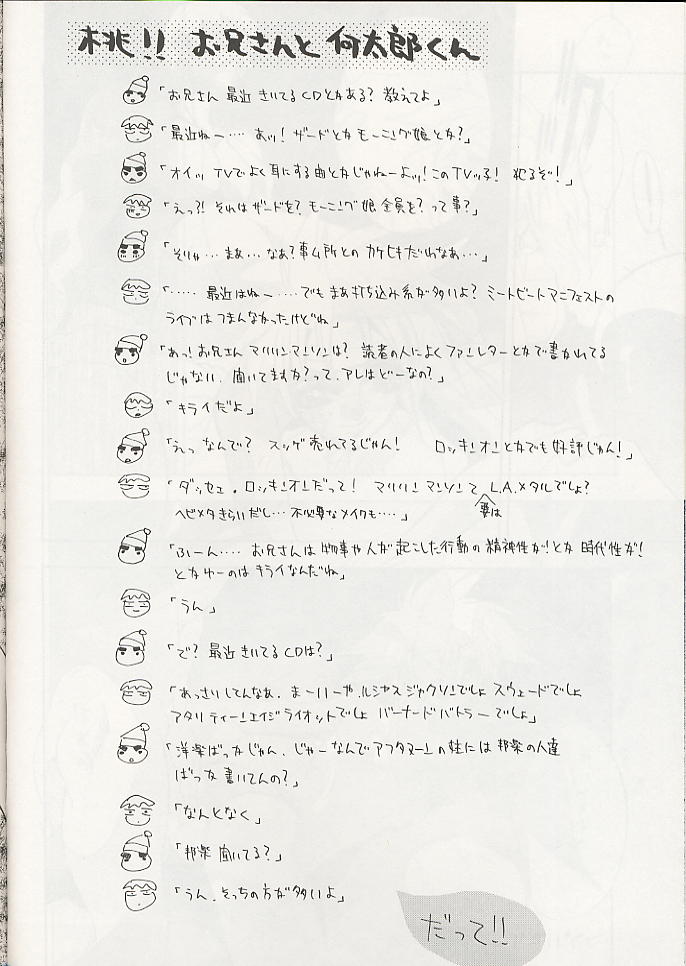 桃!! お兄さんと 何太郎くん
「お兄さん 最近 きいてるCDとかある? 教えてよ」
「最近ねー‥‥ あッ! ザードとか モーニング娘とか?」
「オイッ TVでよく耳にする曲とかじゃねーよッ! このTVッ子! 犯るぞ!」
「えっ?! それは ザードを? モーニング娘全員を? って事?」
「そりゃ‥ まあ‥ なあ? 事ム所との カケヒキだわなあ‥‥」
「‥‥‥ 最近はねー ‥‥でも まあ 打ち込み系が多いよ? ミートビートマニフェストの
ライブは つまんなかったけどね」
「あっ! お兄さん マリリンマンソンは? 読者の人によく ファンレターとかで書かれてる
じゃない. 聞いてますか? って. アレはどーなの?」
「キライだよ」
「えっ なんで? スッゲ売れてるじゃん! ロッキンオンとかでも好評じゃん!」
「ダッセェ. ロッキンオンだって! マリリンマンソンて 要は L.A.メタルでしょ?
ヘビメタきらいだし‥‥ 不必要なメイクも‥‥」
「ふーん‥‥ お兄さんは 物事や人が起こした行動の 精神性が! とか 時代性が!
とかゆーのは キライなんだね」
「うん」
「で? 最近きいてるCDは?」
「あっさりしてんなあ. まーいーや. ルシャス ジャクソンでしょ スウェードでしょ
アタリ ティーンエイジ ライオットでしょ バーナード バトラーでしょ」
「洋楽ばっかじゃん. じゃー なんで アフタヌーンの柱には 邦楽の人達
ばっか 書いてんの?」
「なんとなく」
「邦楽 聞いてる?」
「うん. そっちの方が多いよ」
だって!!